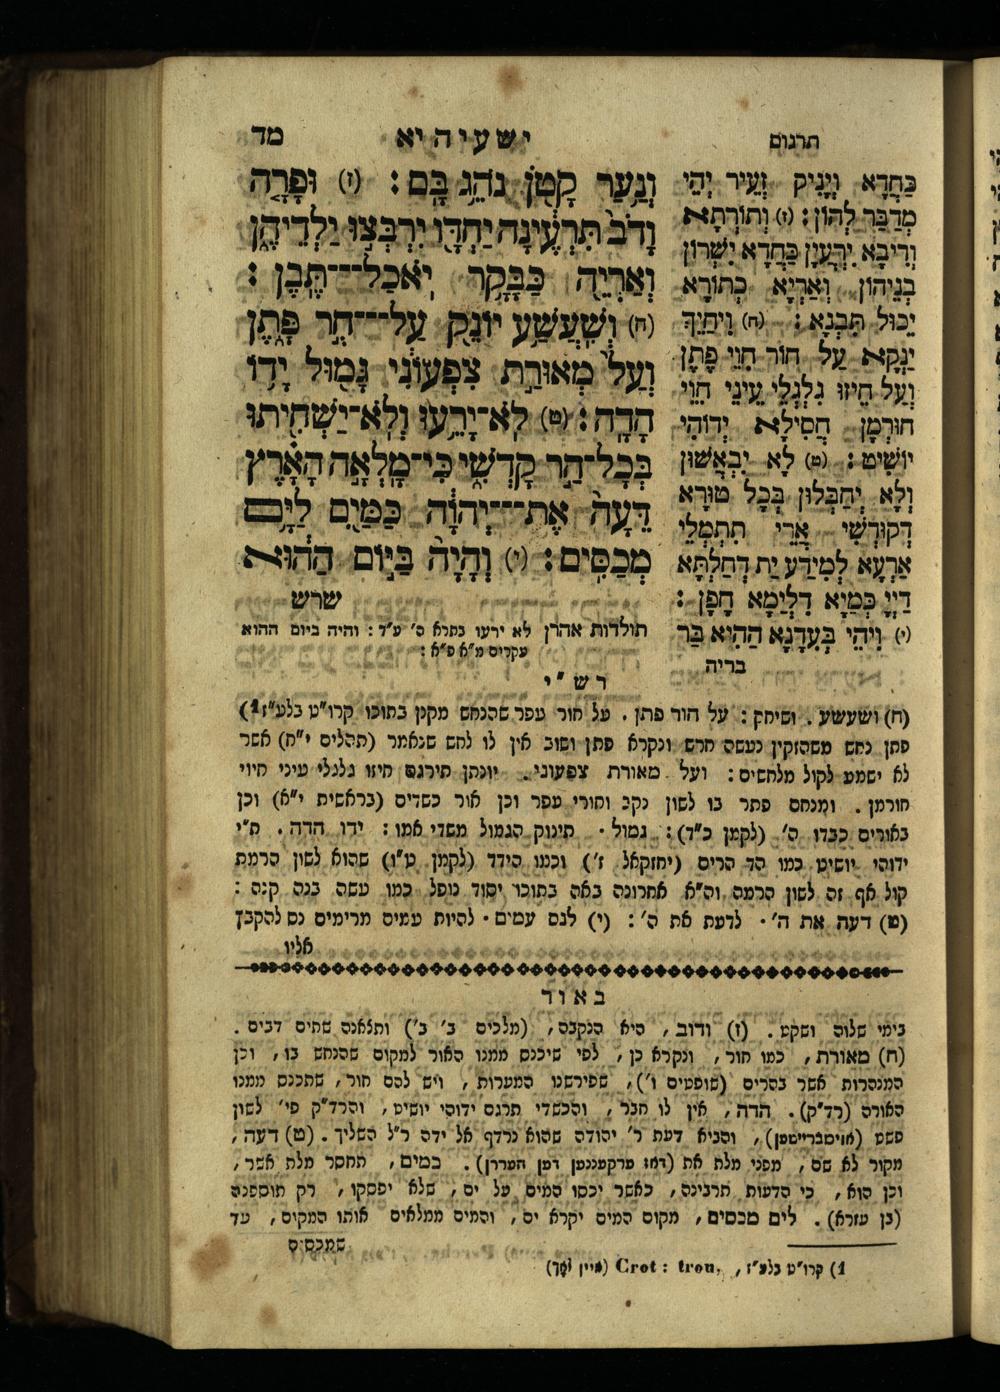 תרגום
ישעיה יא
מד
וְנַ֥עַר קָטֹ֖ן נֹהֵ֥ג בָּֽם׃ (ז) וּפָרָ֤ה
וָדֹב֙ תִּרְעֶ֔ינָה יַחְדָּ֖ו יִרְבְּצ֣וּ יַלְדֵיהֶ֑ן
וְאַרְיֵ֖ה כַּבָּקָ֥ר יֹֽאכַל־תֶּֽבֶן׃
(ח) וְשִֽׁעֲשַׁ֥ע יוֹנֵ֖ק עַל־חֻ֣ר פָּ֑תֶן
וְעַל֙ מְאוּרַ֣ת צִפְעוֹנִ֔י גָּמ֖וּל יָד֥וֹ
הָדָֽה׃ (ט) לֹֽא־יָרֵ֥עוּ וְלֹֽא־יַשְׁחִ֖יתוּ
בְּכָל־הַ֣ר קָדְשִׁ֑י כִּֽי־מָלְאָ֣ה הָאָ֗רֶץ
דֵּעָה֙ אֶת־יְהוָֹ֔ה כַּמַּ֖יִם לַיָּ֥ם
מְכַסִּֽים׃ (י) וְהָיָה֙ בַּיּ֣וֹם הַה֔וּא
שרש
תולדות אהרן לא ירעו בתרא ס׳ ע״ד : והיה ביום ההוא
עקרים מ״א פ״א :
כַּחֲדָא וְיָנִיק זְעֵיר יְהֵי
מְדַבַּר לְהוֹן׃ (ז) וְתוֹרְתָא
וְדֵיבָא יִרְעֲיָן כַּחֲדָא יִשְׁרוֹן
בְּנֵיהוֹן וְאַרְיָא כְּתוֹרָא
יֵכוּל תִּבְנָא׃ (ח) וִיחַיֵךְ
יַנְקָא עַל חוֹר חִוֵי פָתָן
וְעַל חֵיזוּ גִלְגְלֵי עֵינֵי חִוֵי
חוּרְמָן חֲסִילָא יְדוֹהִי
יוֹשִׁיט׃ (ט) לָא יַבְאֲשׁוּן
וְלָא יְחַבְּלוּן בְּכָל טוּרָא
דְקוּדְשִׁי אֲרֵי תִתְמְלֵי
אַרְעָא לְמִידַע יַת דְחַלְתָּא
דַיְיָ כְּמַיָא דִלְיַמָא חָפָן׃
(י) וִיהֵי בְּעִדָנָא הַהִיא בַּר
בריה
רש״י
(ח) ושעשע . ושיחק : על חור פתן . על חור עפר שהנחש מקנן בתוכו קרו״ט בלע״ז 1)
פתן נחש משהזקין נעשה חרש ונקרא פתן ושוב אין לו לחש שנאמר (תהלים נ״ח) אשר
לא ישמע לקול מלחשים : ועל מאורת צפעוני . יונתן תירגם חיזו גלגלי עיני חיוי
חורמן . ומנחם פתר בו לשון נקב וחורי עפר וכן אור כשדים (בראשית י״א) וכן
באורים כבדו ה׳ (לקמן כ״ד) : גמול . תינוק הגמול משדי אמו : ידו הדה . ת״י
ידוהי יושיט כמו הד הרים (יחזקאל ז׳) וכמו הידד (לקמן ט״ז) שהוא לשון הרמת
קול אף זה לשון הרמה וה״א אחרונה באה בתוכו יסוד נופל כמו עשה בנה קנה :
(ט) דעה את ה׳ . לדעת את ה׳ : (י) לנס עמים . להיות עמים מרימים נס להקבץ
אליו
באור
בימי שלוה ושקט . (ז) ודוב , היא הנקבה , (מלכים ב׳ ב׳) ותצאנה שתים דבים .
(ח) מאורת , כמו חור , ונקרא כן , לפי שיכנס ממנו האור למקום שהנחש בו , וכן
המנהרות אשר בהרים (שופטים ו׳) , שפירשנו המערות , ויש להם חור , שתכנס ממנו
האורה (רד״ק) . הדה , אין לו חבר , והכשדי תרגם ידוהי יושיט , והרד״ק פי׳ לשון
פשט (אויסברייטען) , והביא דעת ר׳ יהודה שהוא נרדף אל ידה ר״ל השליך . (ט) דעה ,
מקור לא שם , מפני מלת את (דאז ערקעננען דען העררן) . כמים , תחסר מלת אשר ,
וכן הוא , כי הדעות תרבינה , כאשר יכסו המים על ים , שלא יפסקו , רק תוספנה
(בן עזרא) . לים מכסים , מקום המים יקרא ים , והמים ממלאים אותו המקום , עד
שמכסים
1) קרו״ט בלע״ז , Crot : trou, (איין לאך)